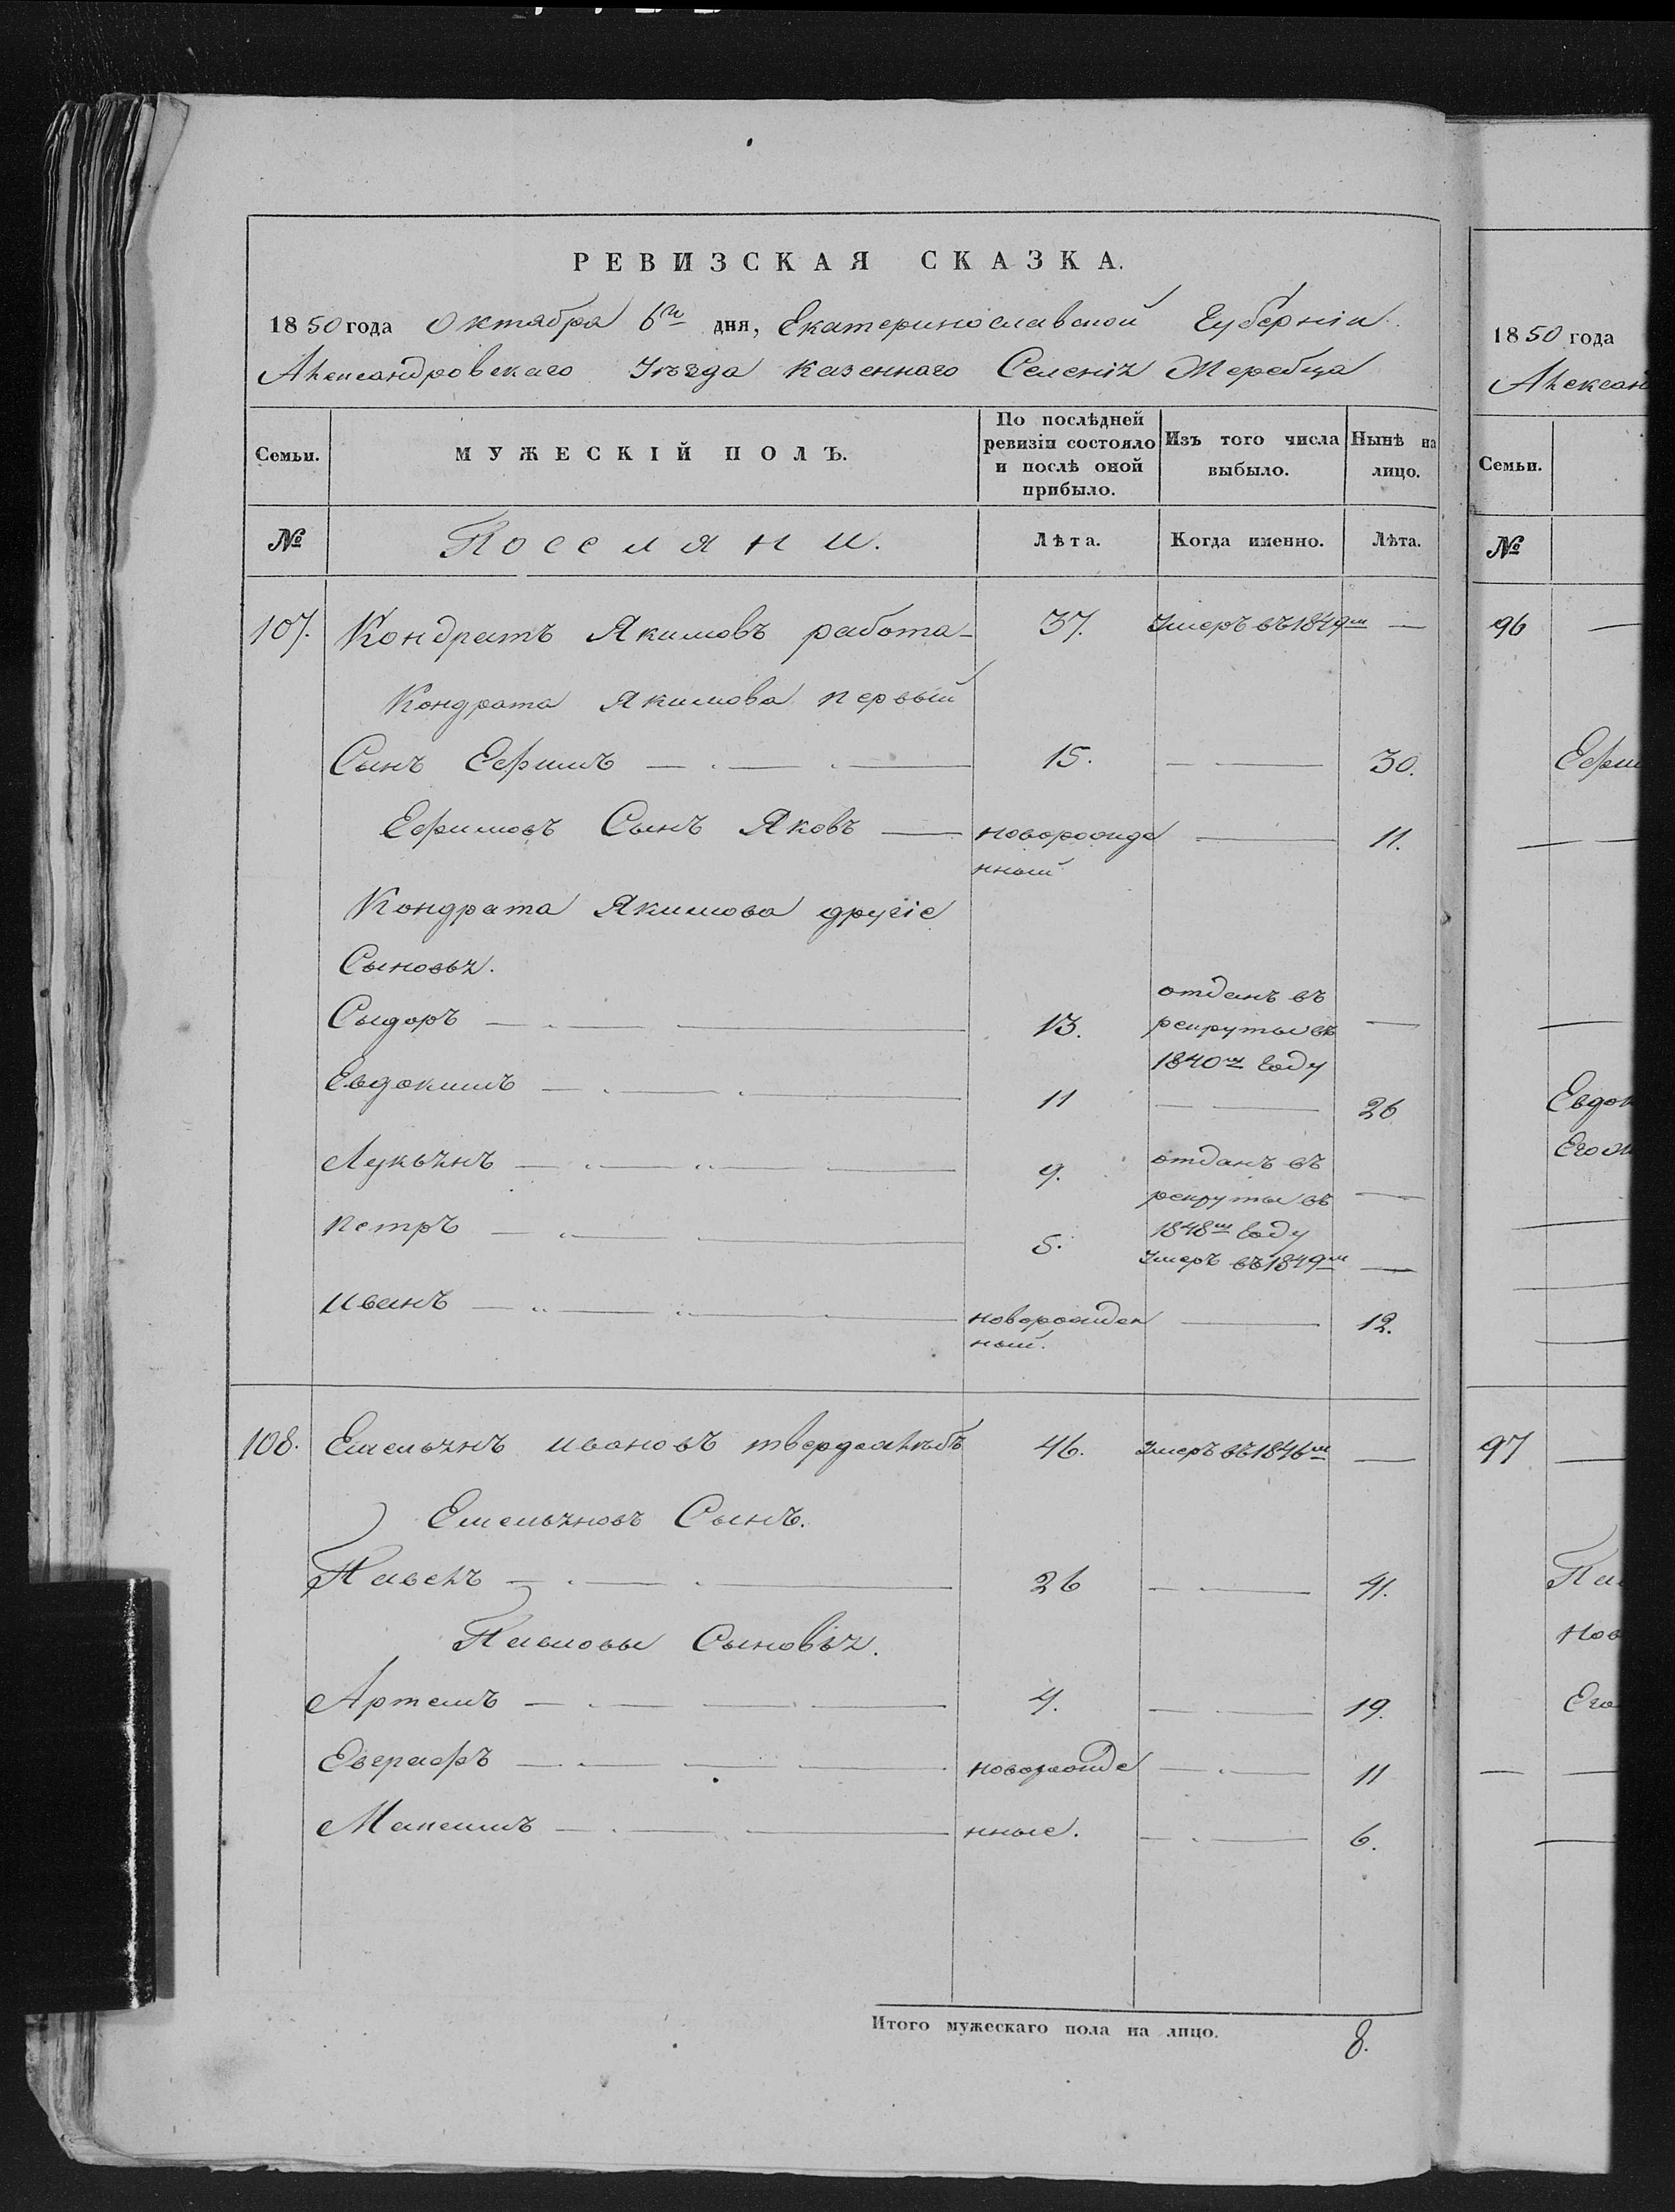 РЕВИЗСКАЯ СКАЗКА.
1850 года Октября 6го дня, Екатеринославской Губерніи
Александровскаго Уѣзда казеннаго Селенія Жеребца
Семьи. МУЖЕСКІЙ ПОЛЪ. По послѣдней ревизіи состояло и послѣ оной прибыло. Изъ того числа выбыло. Нынѣ на лицо.
№ Поселяни. Лѣта. Когда именно. Лѣта.
107. Кондратъ Якимовъ работа- 37. Умеръ въ 1849м —
Кондрата Якимова первый
Сынъ Ефимъ 15. — 30.
Ефимовъ Сынъ Яковъ новорожде нный — 11.
Кондрата Якимова другіе
Сыновья.
Сыдоръ 13. отданъ въ рекруты въ 1840м Году —
Евдокимъ 11 — 26
Лукьянъ 9. отданъ въ рекруты въ 1848м Году —
Петръ 5. Умеръ въ 1849м —
Иванъ новорожден ный. — 12.
108. Емельянъ Ивановъ 46. Умеръ въ 1846м —
Емельяновъ Сынъ.
Павелъ 26 — 41.
Павловы Сыновья.
Артемъ 4. — 19.
Евграфъ новорожде — 11
Максимъ нные. — 6.
Итого мужескаго пола на лицо. 8.
1850 года
Алексан
Семьи.
№
96
Ефим
Евдок
Его ж
97
Па
Пов
Его